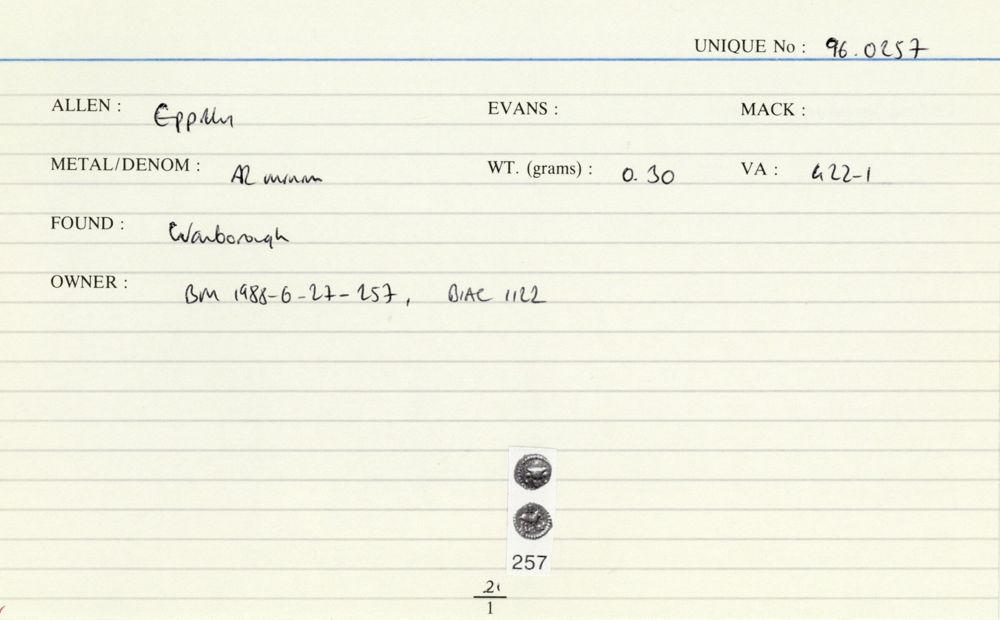 UNIQUE No : 96.0257
ALLEN : Eppillus EVANS : MACK :
METAL/DENOM : AR minim WT. (grams) : 0.30 VA : 422-1
FOUND : Wanborough
OWNER : BM 1988-6-27-257, BIAC 1122
257
2
1